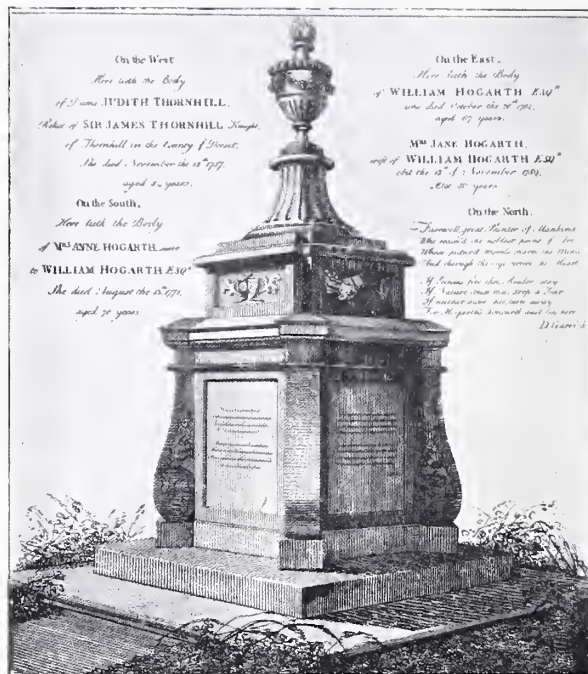 On the West
Here lieth the Body
of Dame JUDITH THORNHILL,
Relict of SIR JAMES THORNHILL Knight,
of Thornhill in the County of Dorset,
She died November the 12th 1757,
aged 84 years.
On the South,
Here lieth the Body
of Mrs ANNE HOGARTH, sister
to WILLIAM HOGARTH ESQr
She died August the 13th 1771,
aged 70 years
On the East,
Here lieth the Body
of WILLIAM HOGARTH ESQr
who died October the 26th 1764,
aged 67 years.
Mrs JANE HOGARTH,
wife of WILLIAM HOGARTH ESQr
obit the 13th of November 1789,
Ætat 80 years
On the North,
Farewell, great Painter of Mankind
Who reach'd the noblest point of Art
Whose pictur'd Morals charm the Mind
And through the eye correct the Heart
If Genius fire thee, Reader stay
If Nature touch thee, drop a Tear
If neither move thee, turn away
For Hogarth's honour'd dust lies here
D. Garrick